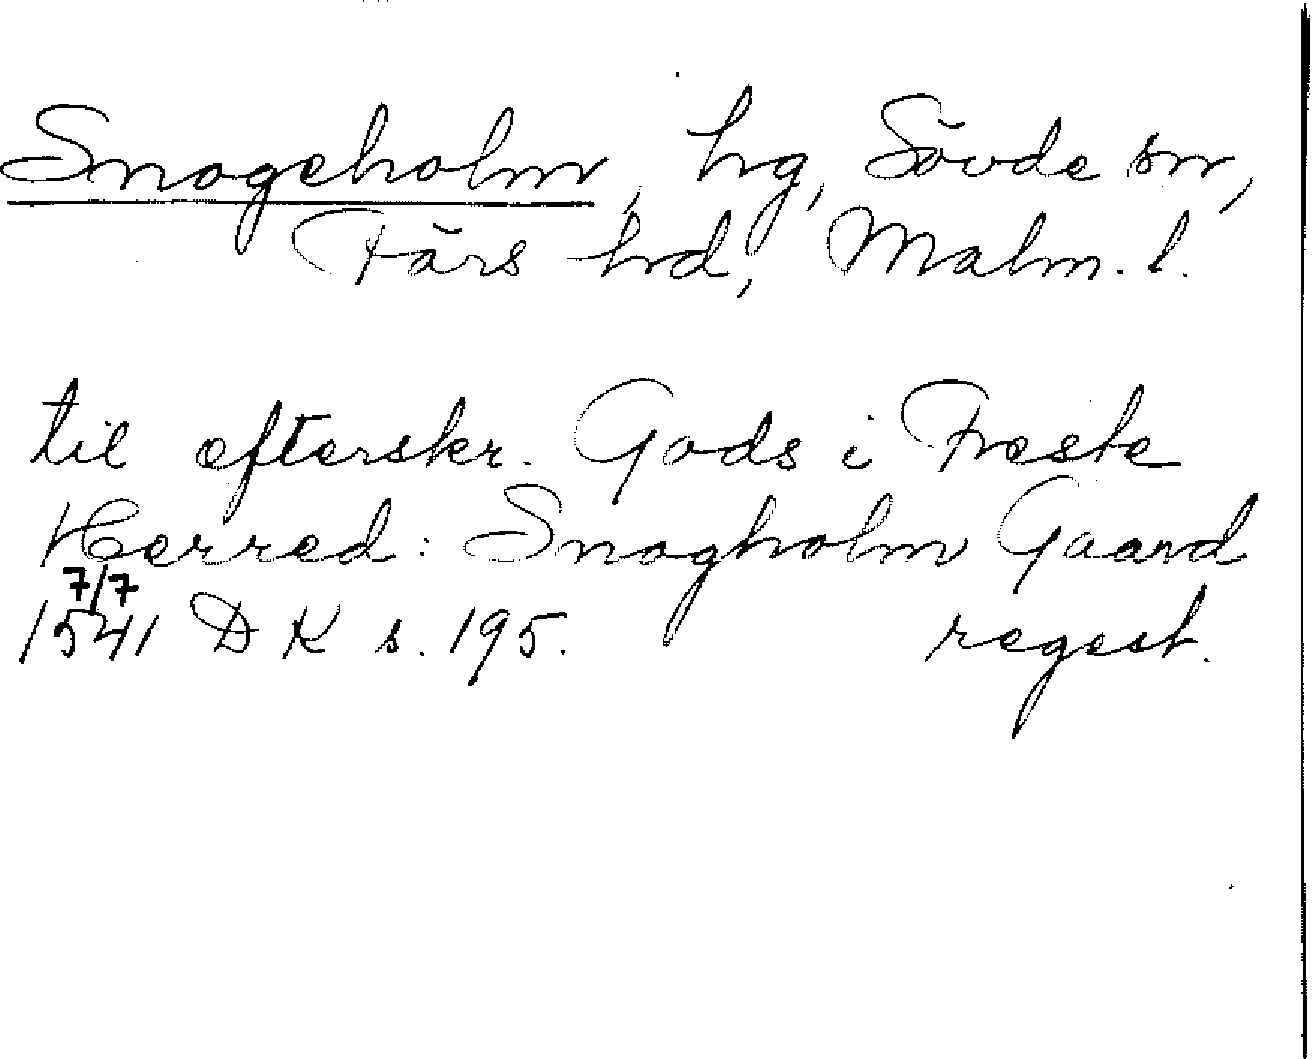 Snogeholm, hg, Sövde sn,
Färs hd, Malm. l.
til efterskr. Gods i Fræste
Herred: Snogholm Gaard
7/7
1541 DK s. 195. regest.